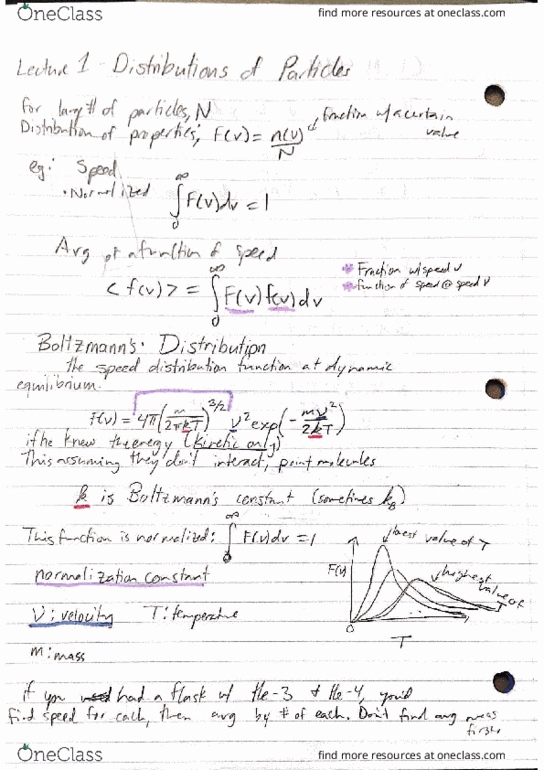 OneClass
find more resources at oneclass.com
Lecture 1 - Distributions of Particles
For large # of particles, N
Fraction w/ a certain value
Distribution of properties, F(v) = n(v)/N
eg: Speed
• Normalized ∫₀^∞ F(v)dv = 1
Avg of a function of speed
<f(v)> = ∫₀^∞ F(v) f(v) dv
* Fraction w/ speed v
* function of speed @ speed v
Boltzmann's Distribution
the speed distribution function at dynamic
equilibrium.
F(v) = 4π(m/2πkT)^3/2 v² exp(-mv²/2kT)
if he knew the energy (kinetic only)
This assuming they don't interact, point molecules
k is Boltzmann's constant (sometimes k_B)
This function is normalized: ∫₀^∞ F(v)dv = 1
normalization constant
V: velocity T: temperature
m: mass
F(v)
lowest value of T
highest value of T
0
T
if you had a flask w/ He-3 & He-4, you'd
find speed for each, then avg by # of each. Don't find avg mass
first.
OneClass
find more resources at oneclass.com